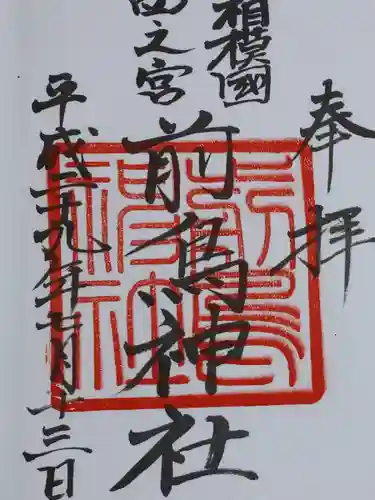 奉拝
相模國
四之宮
前鳥神社
平成二十九年七月十三日
前鳥神社